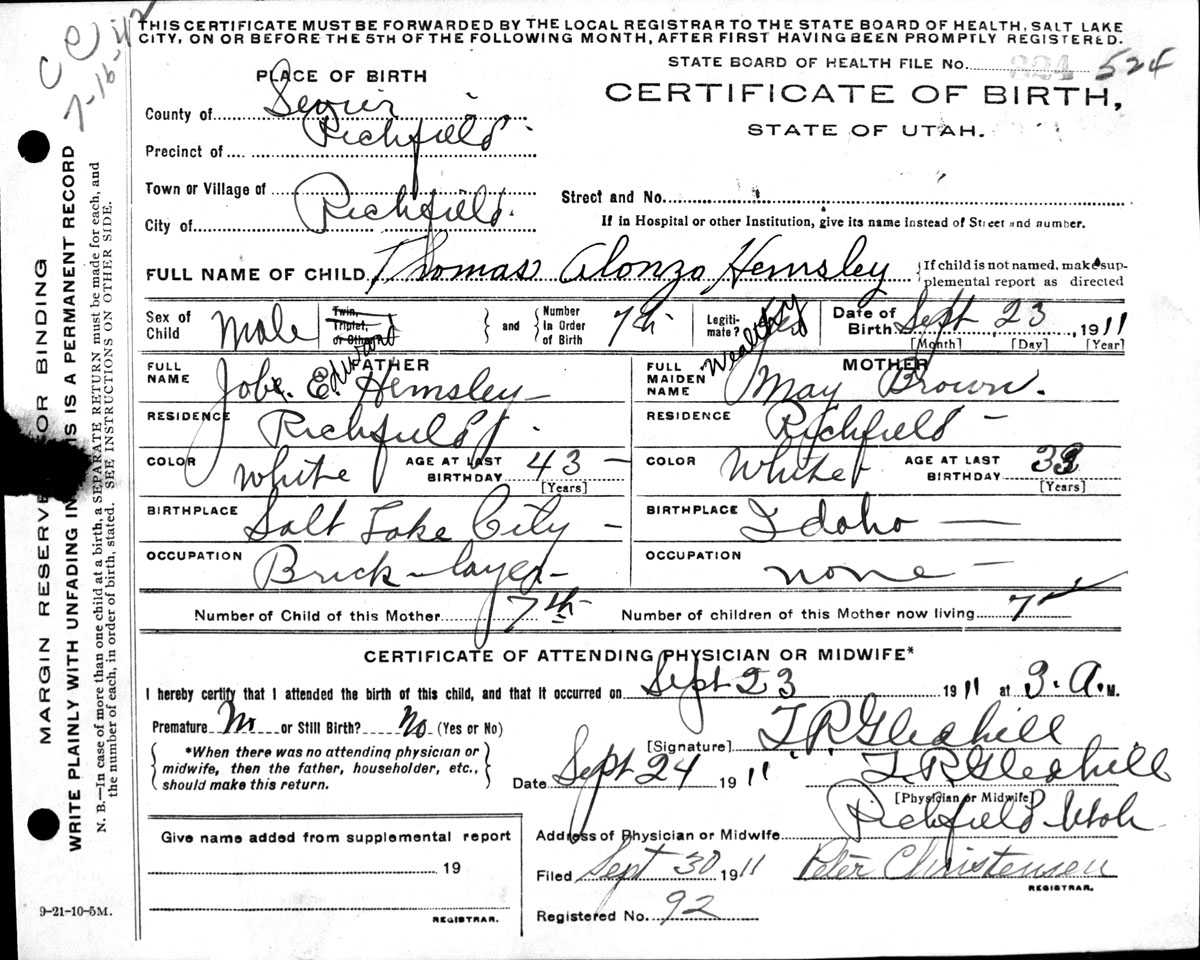 THIS CERTIFICATE MUST BE FORWARDED BY THE LOCAL REGISTRAR TO THE STATE BOARD OF HEALTH, SALT LAKE
CITY, ON OR BEFORE THE 5TH OF THE FOLLOWING MONTH, AFTER FIRST HAVING BEEN PROMPTLY REGISTERED.
STATE BOARD OF HEALTH FILE NO. 324 524
CERTIFICATE OF BIRTH,
STATE OF UTAH.
PLACE OF BIRTH
County of Sevier
Precinct of Richfield
Town or Village of
City of Richfield
Street and No.
If in Hospital or other Institution, give its name instead of Street and number.
FULL NAME OF CHILD Thomas Alonzo Hemsley
{If child is not named, make sup-
plemental report as directed
Sex of Child Male
Twin, Triplet, or Other
and
Number in Order of Birth 7th
Legiti-mate?
Date of Birth Sept 23, 1911
[Month] [Day] [Year]
FATHER
FULL NAME Job E. Edward Hemsley
RESIDENCE Richfield
COLOR White AGE AT LAST BIRTHDAY 43
[Years]
BIRTHPLACE Salt Lake City
OCCUPATION Brick-layer
MOTHER
FULL MAIDEN NAME May Brown.
RESIDENCE Richfield
COLOR White AGE AT LAST BIRTHDAY
[Years]
BIRTHPLACE Idaho
OCCUPATION none
Number of Child of this Mother 7th
Number of children of this Mother now living 7
CERTIFICATE OF ATTENDING PHYSICIAN OR MIDWIFE*
I hereby certify that I attended the birth of this child, and that it occurred on Sept 23 1911 at 3. A. M.
Premature No or Still Birth? No (Yes or No)
*When there was no attending physician or
midwife, then the father, householder, etc.,
should make this return.
[Signature] T. R. Gledhill
Date Sept 24 1911 T. R. Gledhill
[Physician or Midwife]
Address of Physician or Midwife Richfield Utah
Filed Sept 30 1911 Peter Christensen
REGISTRAR.
Registered No. 92
Give name added from supplemental report
19
REGISTRAR.
9-21-10-5M.
MARGIN RESERVE OR BINDING
WRITE PLAINLY WITH UNFADING IN IS IS A PERMANENT RECORD
N. B.—In case of more than one child at a birth, a SEPARATE RETURN must be made for each, and
the number of each, in order of birth, stated. SEE INSTRUCTIONS ON OTHER SIDE.
7-16-42